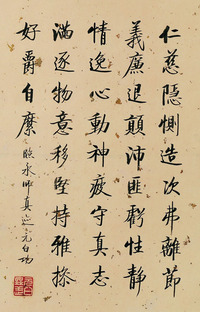 仁慈隱惻造次弗離節
義廉退顛沛匪虧性靜
情逸心動神疲守真志
滿逐物意移堅持雅操
好爵自縻 臨永師真迹 元白功